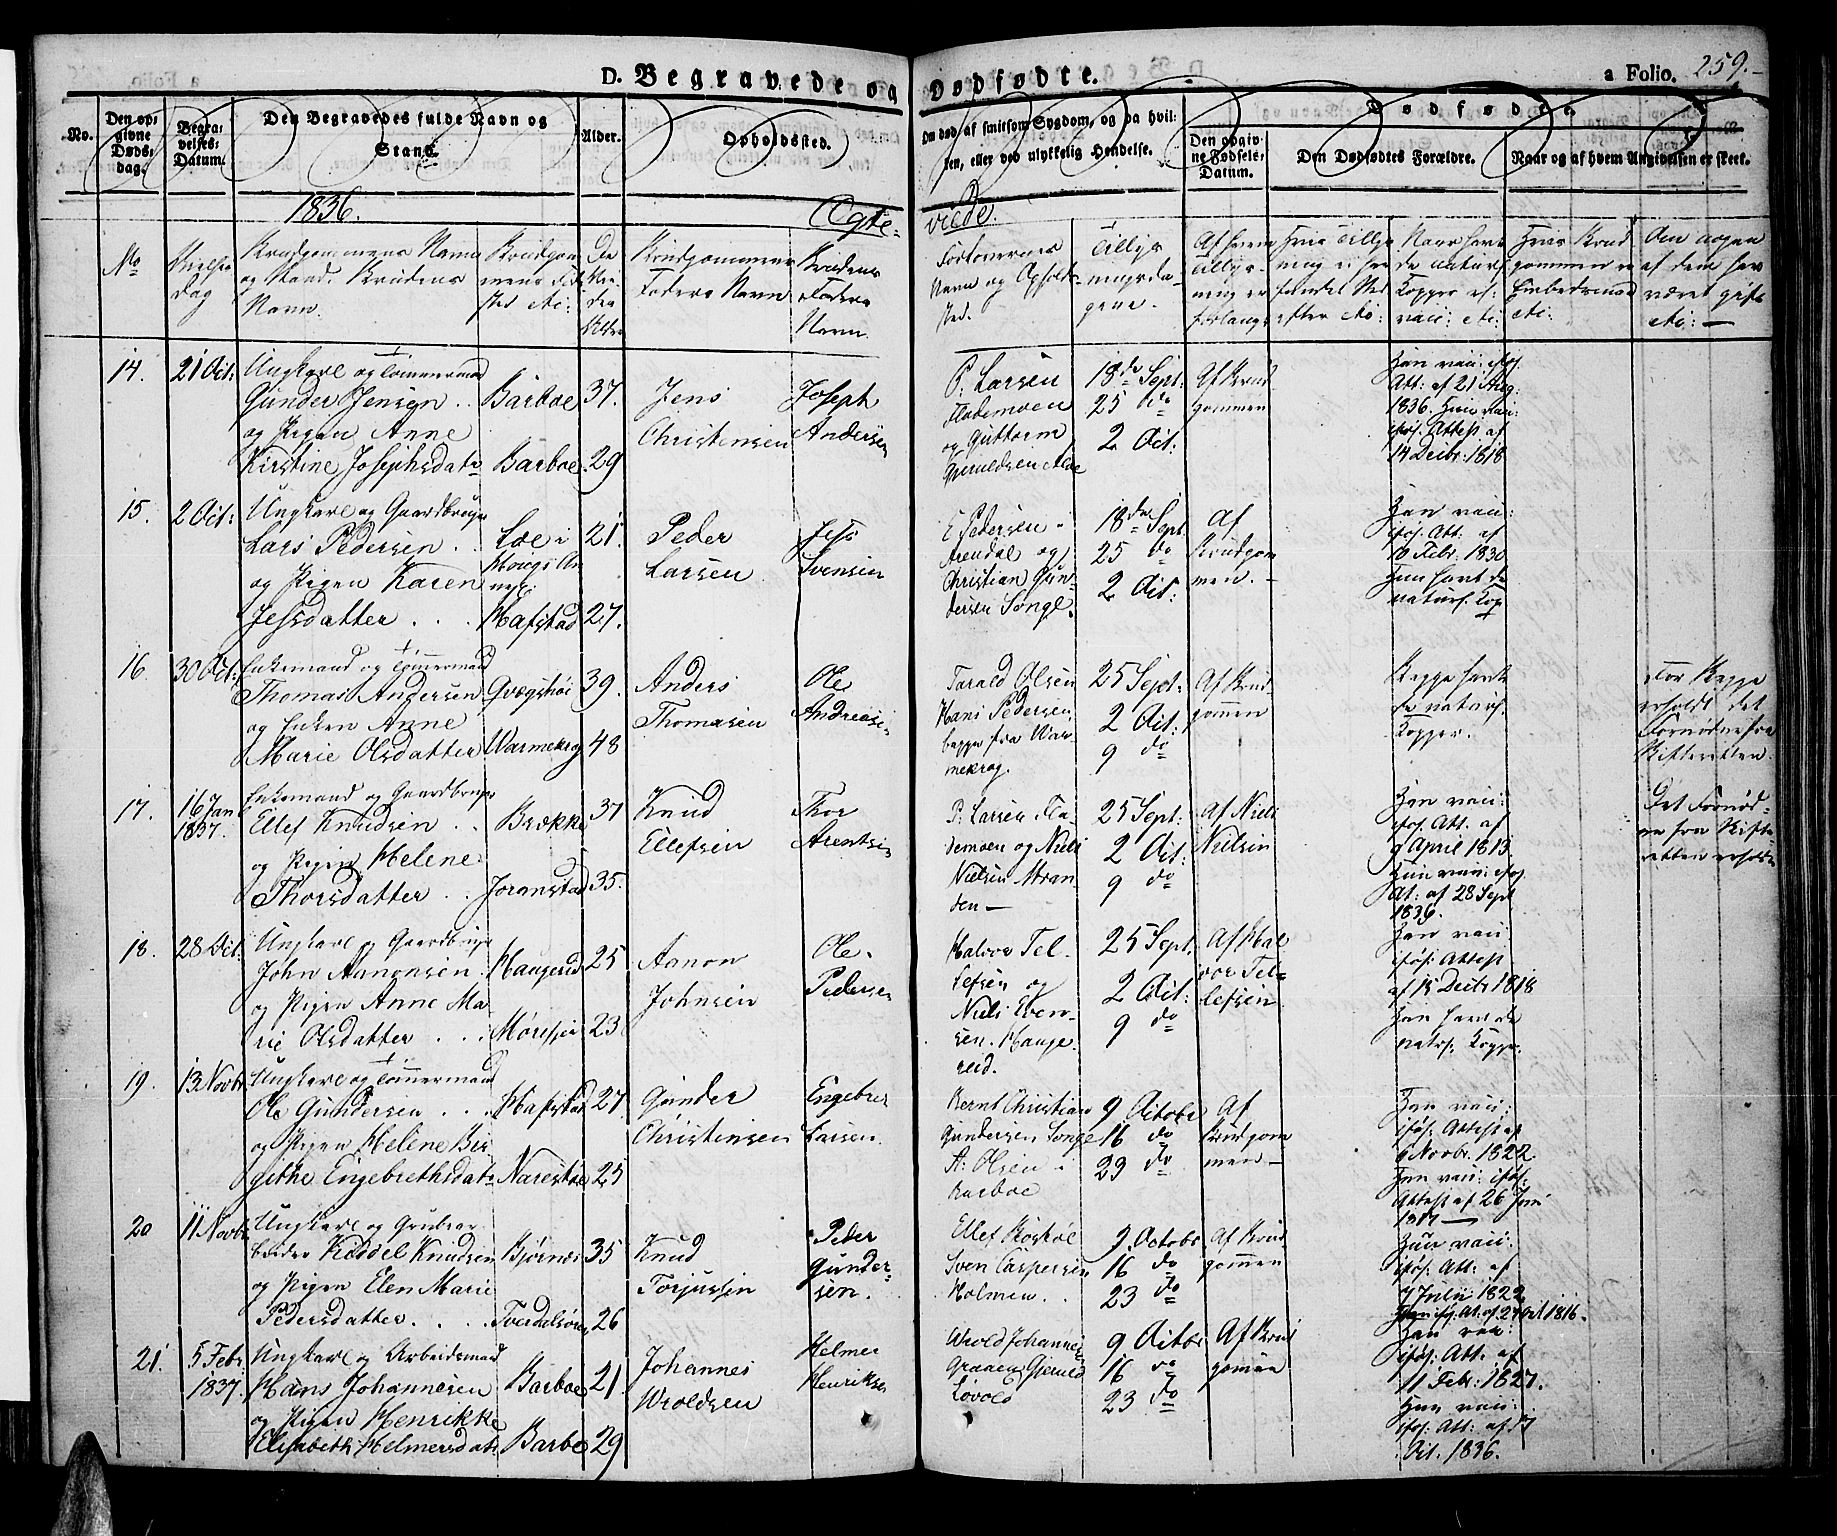 D. Begravede og Dødfødte.
a Folio. 259.
No.
Den op-
givne
Døds-
dag.
Begra-
velses-
Datum.
Den Begravedes fulde Navn og
Stand.
Alder.
Opholdssted.
Om død af smitsom Sygdom, og da hvil-
ken, eller ved ulykkelig Hendelse.
Dødfødte.
Den opgiv-
ne Fødsels-
Datum.
Den Dødfødtes Forældre.
Naar og af hvem Angivelsen er skeet.
1836.
Ægte-
viede.
No
Vielses
dag
Brudgommens Navn
og Stand. Brudens
Navn.
Brudgom
mens Op
sted
De
Vie-
des
Alder
Brudgommens
Faders Navn
Brudens
Faders
Navn
Forlovernes
Navn og Opholds-
sted.
Tillys
ningsda-
gene.
Af hvem
Tillys-
ning er
forlangt
Naar havt
de naturl.
Kopper
14.
21 Oct:
Ungkarl og Tømmermand
Gunder Jensen
og Pigen Anne
Kirstine Josephsdatr
Barboe
Barboe
37.
29
Jens
Christensen
Joseph
Andersen
P. Larsen
Flademoen
og Guttorm
18de Sept:
25 do
2 Oct:
Af Brud
gommen
Han vacc:
Att: af 21 Aug
1836. Hun vac:
Attest af
14 Decbr: 1818
15.
2 Oct:
Ungkarl og Gaardbruger
Lars Pedersen
og Pigen Karen
Jessdatter
Loe i
Hougs An
nex
Hafstad
21.
27.
Peder
Larsen
Jess
Svensen
E Pedersen i
Arendal og
Christian Gun-
dersen Songe
18de Sept
25 do
2 Oct:
Af
Brudgom
men.
Han vacc:
Att: af
10 Febr: 1830
Hun havt de
naturl. Kop
16.
30 Oct:
Enkemand og Tømmermand
Thomas Andersen
og Enken Anne
Marie Olsdatter
Gvegshei
Warmekrog
39.
48
Anders
Thomasen
Ole
Andreas
Tarald Olsen
Hans Pedersen
begge fra War-
mekrog.
25 Sept:
2 Oct:
9 do
Af Brud
gommen
Begge havt
de naturl.
Kopper.
For Begge
erholdt det
Fornødne fra
Skifteretten.
17.
16 Jan
1837.
Enkemand og Gaardbruger
Ellef Knudsen
og Pigen Helene
Thorsdatter
Brække
Joranstad
37
35.
Knud
Ellefsen
Thor
Arentsen
P. Larsen Fla
demoen og Niels
Nielsen Stran-
den
25 Sept:
2 Oct:
9 do
Af Niels
Nielsen
Han vacc:
Att. af
9 April 1813
Hun vacc:
At: af 28 Sept
1836.
Det Fornød-
ne fra Skifte
retten erholdt
18.
28 Oct:
Ungkarl og Gaardbruger
John Aanonsen
og Pigen Anne Ma-
rie Olsdatter
Haugerud
25
23
Aanon
Johnsen
Ole
Pedersen
Halvor Tel-
lefsen og
Niels Even-
sen Hauge-
reid.
25 Sept:
2 Oct:
9 do
Af Hal
vor Tel-
lefsen
Han vacc:
Attest
af 15 Decbr 1818
Hun havt de
naturl. Kopper.
19.
13 Novbr
Ungkarl og Tømmermand
Ole Gundersen
og Pigen Helene Bir-
githe Engebrethsdatr
Hafstad
Narestøe
27
25
Gunder
Christensen
Engebret
Larsen.
Bernt Christian
Gundersen Songe
A: Olsen i
Barboe
9 Octobr
16 do
23 do
Af
Brudgom
men
Han vacc:
Attest af
9 Novbr. 1822.
Hun vacc:
Attest af 26 Juni
1817
20
11 Novbr
Ungkarl og Grubear-
beider Kiddel Knudsen
og Pigen Elen Marie
Pedersdatter
Bjørnes
Tverdalsøen
35
26
Knud
Torjussen
Peder
Gunder-
sen.
Ellef
Sven Caspersen
Holmen
9. Octobr
16 do
23 do
Af Brud
gommen
Han vacc:
Att: af
7 Julii 1822
Hun At. af 27 Oct 1816.
21.
5 Febr.
1837.
Ungkarl og Arbeidsmand
Hans Johannesen
og Pigen Henrikke
Elisabeth Helmersdatr
Barboe
Barboe
21
29
Johannes
Wroldsen
Helmer
Henriksen
Wrold Johannes
Løvold
9 Octbr
16 do
23 do
Af Brud
gommen
Han vac:
Att: af
11 Febr: 1827.
Hun vacc:
Att: af 7
Oct: 1836.